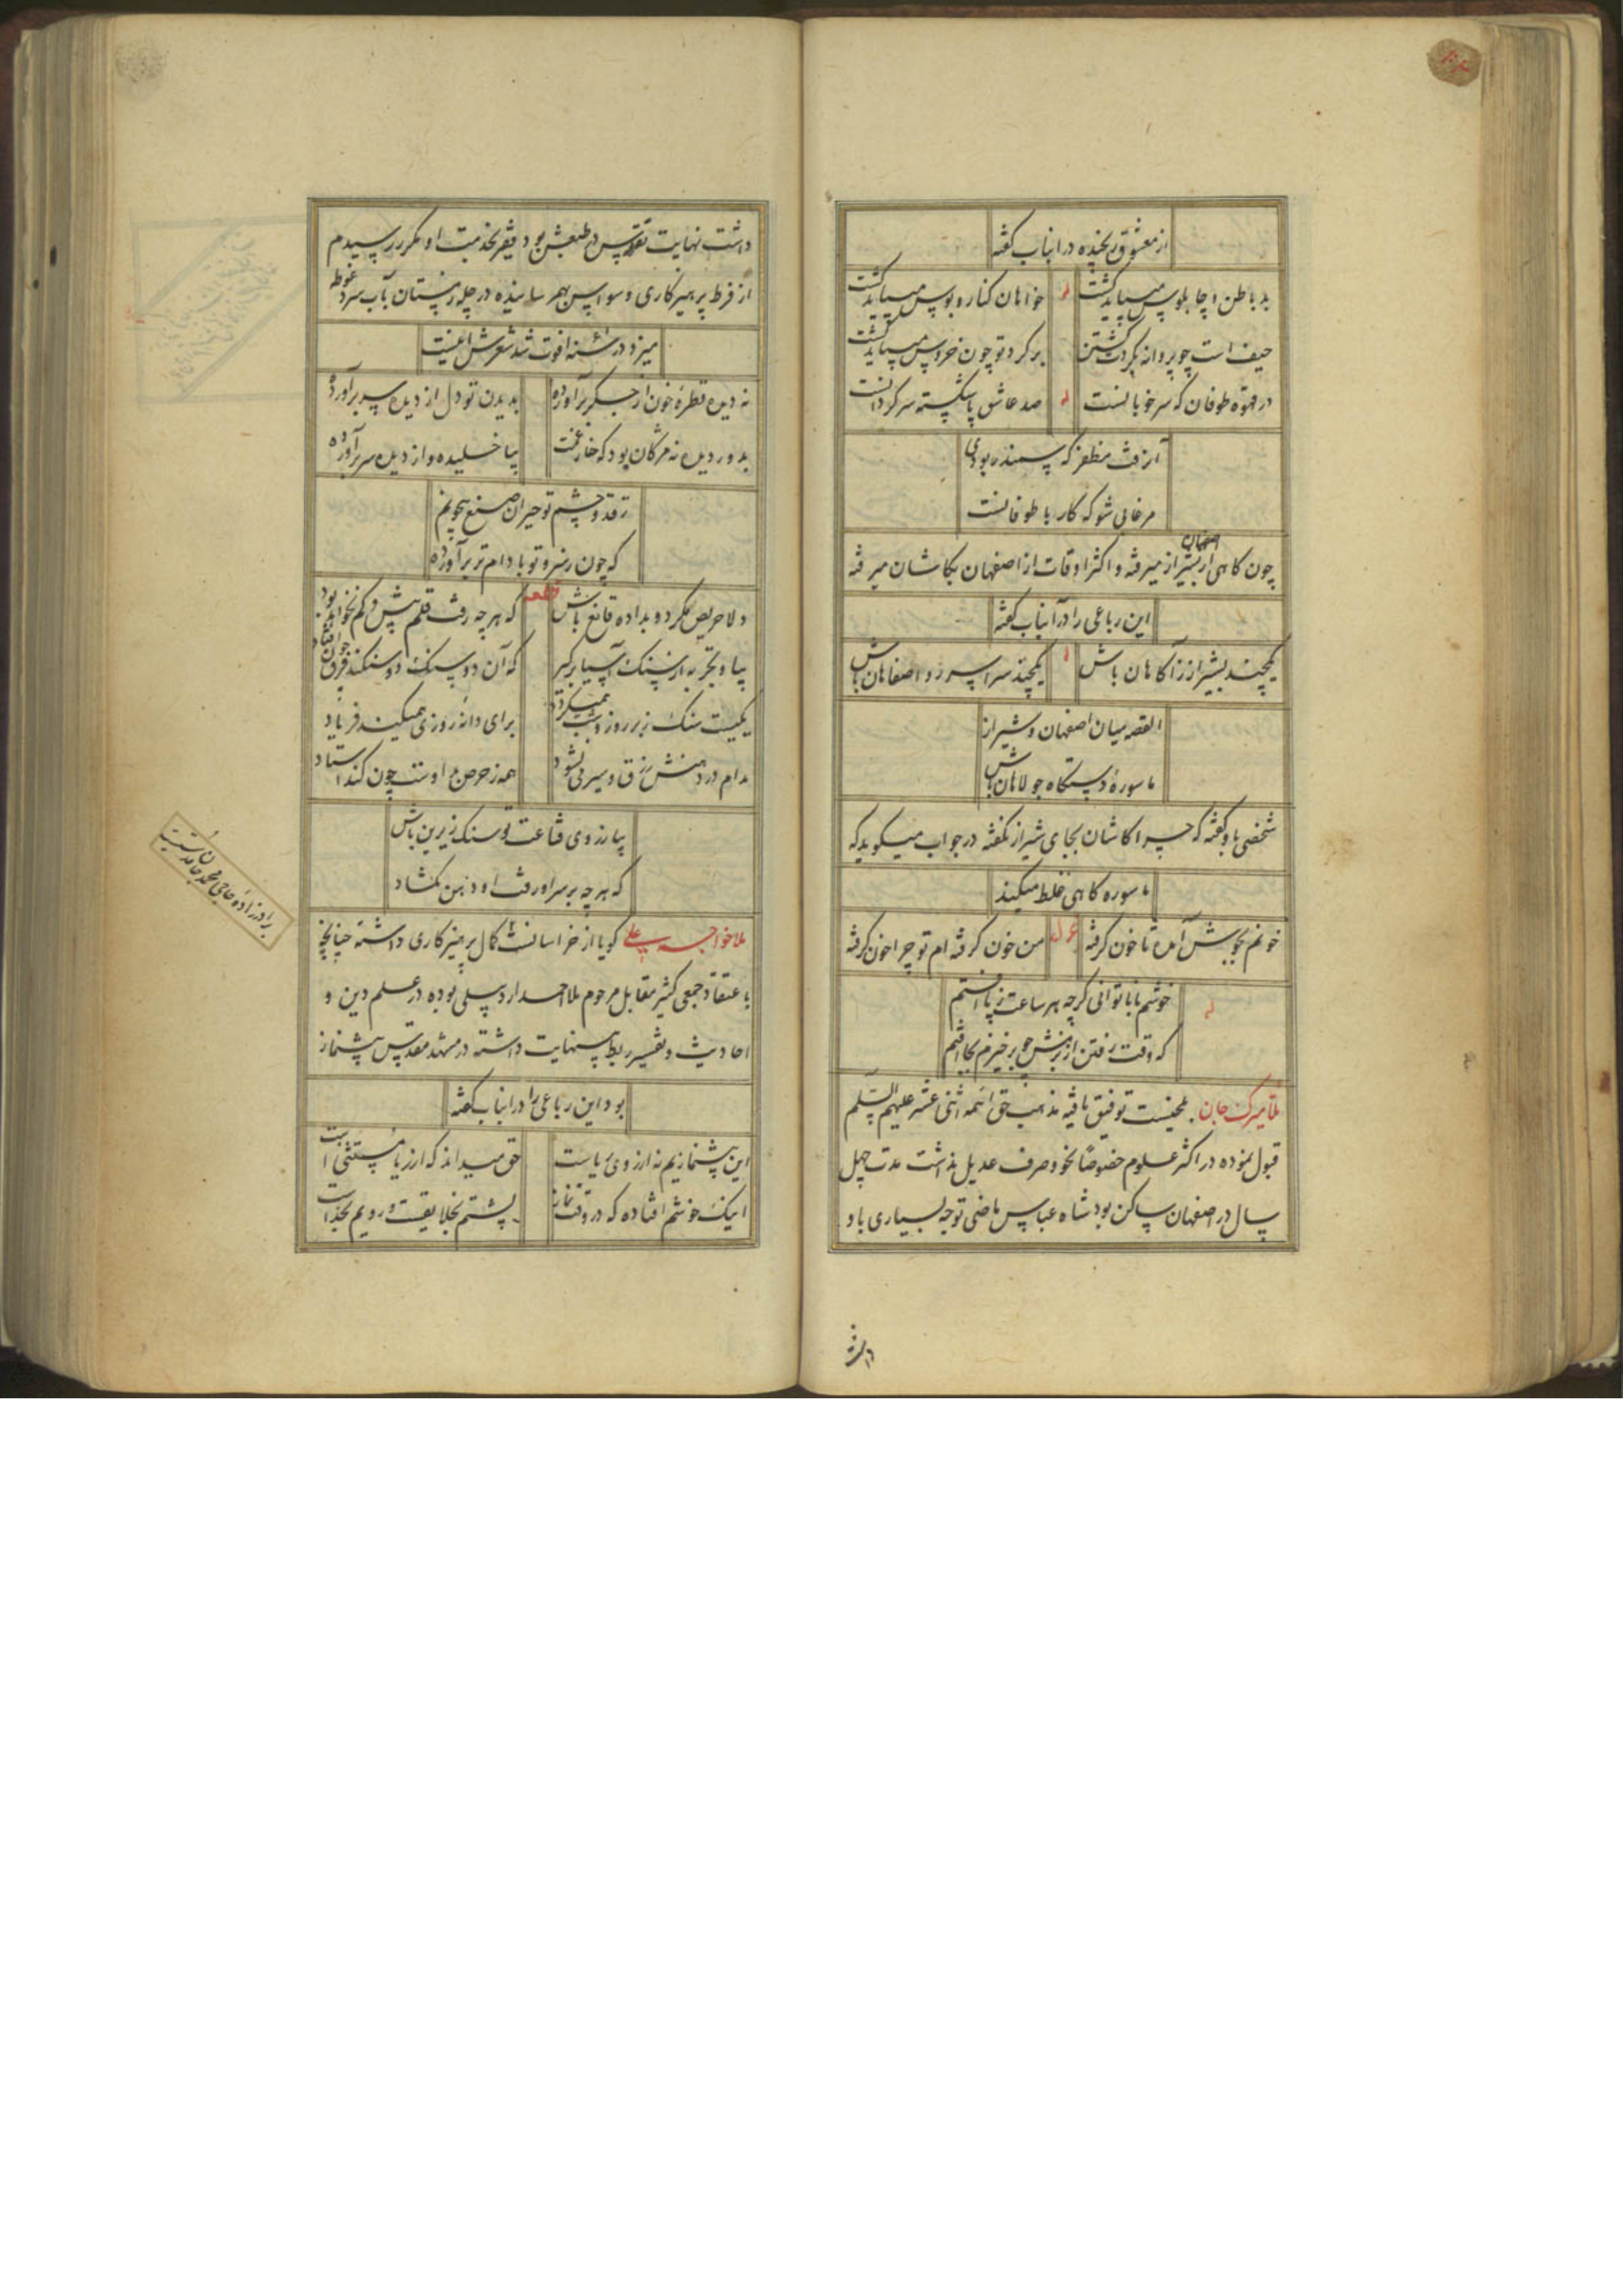 از معشوق رنجیده در اینباب گفته
بد باطن و چاپلوس میباید گشت له خواهان کنار و بوس میباید گشت
حیف است چو پروانه بگردت گشتن بر گرد تو چون خروس میباید گشت
در قهوه طوفان که سر خوبانست له صد عاشق پا شکسته سر گردانست
آن رفت مظفر که سمندر بودی
مرغابی شو که کار با طوفانست
چون گاهی از شیراز میرفته و اکثر اوقات از اصفهان بکاشان میرفته
اصفهان
این رباعی را در آنباب گفته
یکچند بشیراز ز آگاهان باش یکچند سراسر رو اصفاهان باش
القصه میان اصفهان و شیراز
ماسوره دستگاه جولاهان باش
شخصی باو گفته که چرا کاشان بجای شیراز نگفته در جواب میگوید که
ماسوره گاهی غلط میکند
خونم بجوش آمده تا خون گرفته من خون گرفته ام تو چرا خون گرفته
له خوشم با ناتوانی گرچه هر ساعت ز پا افتم
که وقت رفتن از بزمش چو برخیزم بجا افتم
ملا میرک جان بلخیست توفیق یافته مذهب حق ائمه اثنی عشر علیهم السلم
قبول نموده در اکثر علوم خصوصا نحو و صرف عدیل نداشت مدت چهل
سال در اصفهان ساکن بود شاه عباس ماضی توجه بسیاری باو
داشت
داشت نهایت تقدس در طبعش بود فقیر بخدمت او مکرر رسیدم
از فرط پرهیزکاری وسواسی بهم رسانیده در چله زمستان بآب سرد غوطه
میزد در سنه فوت شد شعرش اینست
نه دیده قطره خون از جگر برآورده بدیدن تو دل از دیده سر برآورده
بدور دیده نه مژگان بود که خار غمت بپا خلیده و از دیده سر برآورده
ز قد و چشم تو حیران صنع بیچونم
که چون ز سرو تو بادام تر برآورده
قطعه
دلا حریص مگرد و بداده قانع باش که هر چه رفت قلم بیش و کم نخواهد بود
بیا و تجربه از سنگ آسیا برگیر که آن دو سنگ دو سنگند فرق چون افتاد
یکیست سنگ زبر روز و شب همیگردد برای دانه روزی همیکند فریاد
مدام در دهنش رزق و سیر می نشود همه ز حرص مر اوست چون کند استاد
بیا ز روی قناعت تو سنگ زیرین باش
که هر چه بر سر او رفت او دهن نگشاد
ملا خواجه علی گویا از خراسانست کمال پرهیزکاری داشته چنانچه
باعتقاد جمعی کثیر مقابل مرحوم ملا احمد اردبیلی بوده در علم دین و
احادیث و تفسیر ربط بینهایت داشته در مشهد مقدس پیشنماز
بود این رباعی را در اینباب گفته
این پیشنمازیم نه از روی ریاست حق میداند که از ریا مستثنی است
اینک خوشم افتاده که در وقت نماز پشتم بخلایقست و رویم بخداست
برادرزاده حاجی محمد جان قدسیست